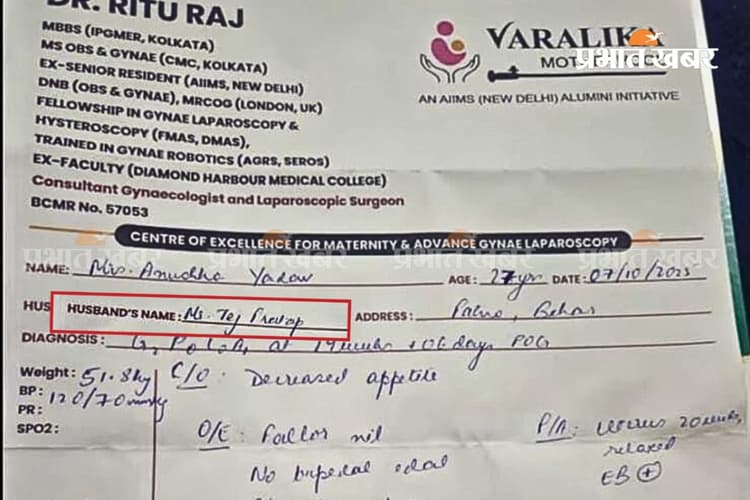 DR. RITU RAJ
MBBS (IPGMER, KOLKATA)
MS OBS & GYNAE (CMC, KOLKATA)
EX-SENIOR RESIDENT (AIIMS, NEW DELHI)
DNB (OBS & GYNAE), MRCOG (LONDON, UK)
FELLOWSHIP IN GYNAE LAPAROSCOPY &
HYSTEROSCOPY (FMAS, DMAS),
TRAINED IN GYNAE ROBOTICS (AGRS, SEROS)
EX-FACULTY (DIAMOND HARBOUR MEDICAL COLLEGE)
Consultant Gynaecologist and Laparoscopic Surgeon
BCMR No. 57053
VARALIKA
प्रभात खबर
AN AIIMS (NEW DELHI) ALUMINI INITIATIVE
CENTRE OF EXCELLENCE FOR MATERNITY & ADVANCE GYNAE LAPAROSCOPY
प्रभात खबर प्रभात खबर प्रभात खबर
NAME: Mrs. Anushka Yadav AGE: 27yr DATE: 07/10/2025
HUS HUSBAND'S NAME: Mr. Tej Pratap ADDRESS: Patna, Bihar
DIAGNOSIS: at 19 weeks + 06 days POG
Weight: 51.8kg C/O: Decreased appetite
BP: 120/70 mmHg
PR:
SPO2:
O/E: Pallor nil P/A: uterus 20 weeks,
relaxed
No bipedal edema EB +